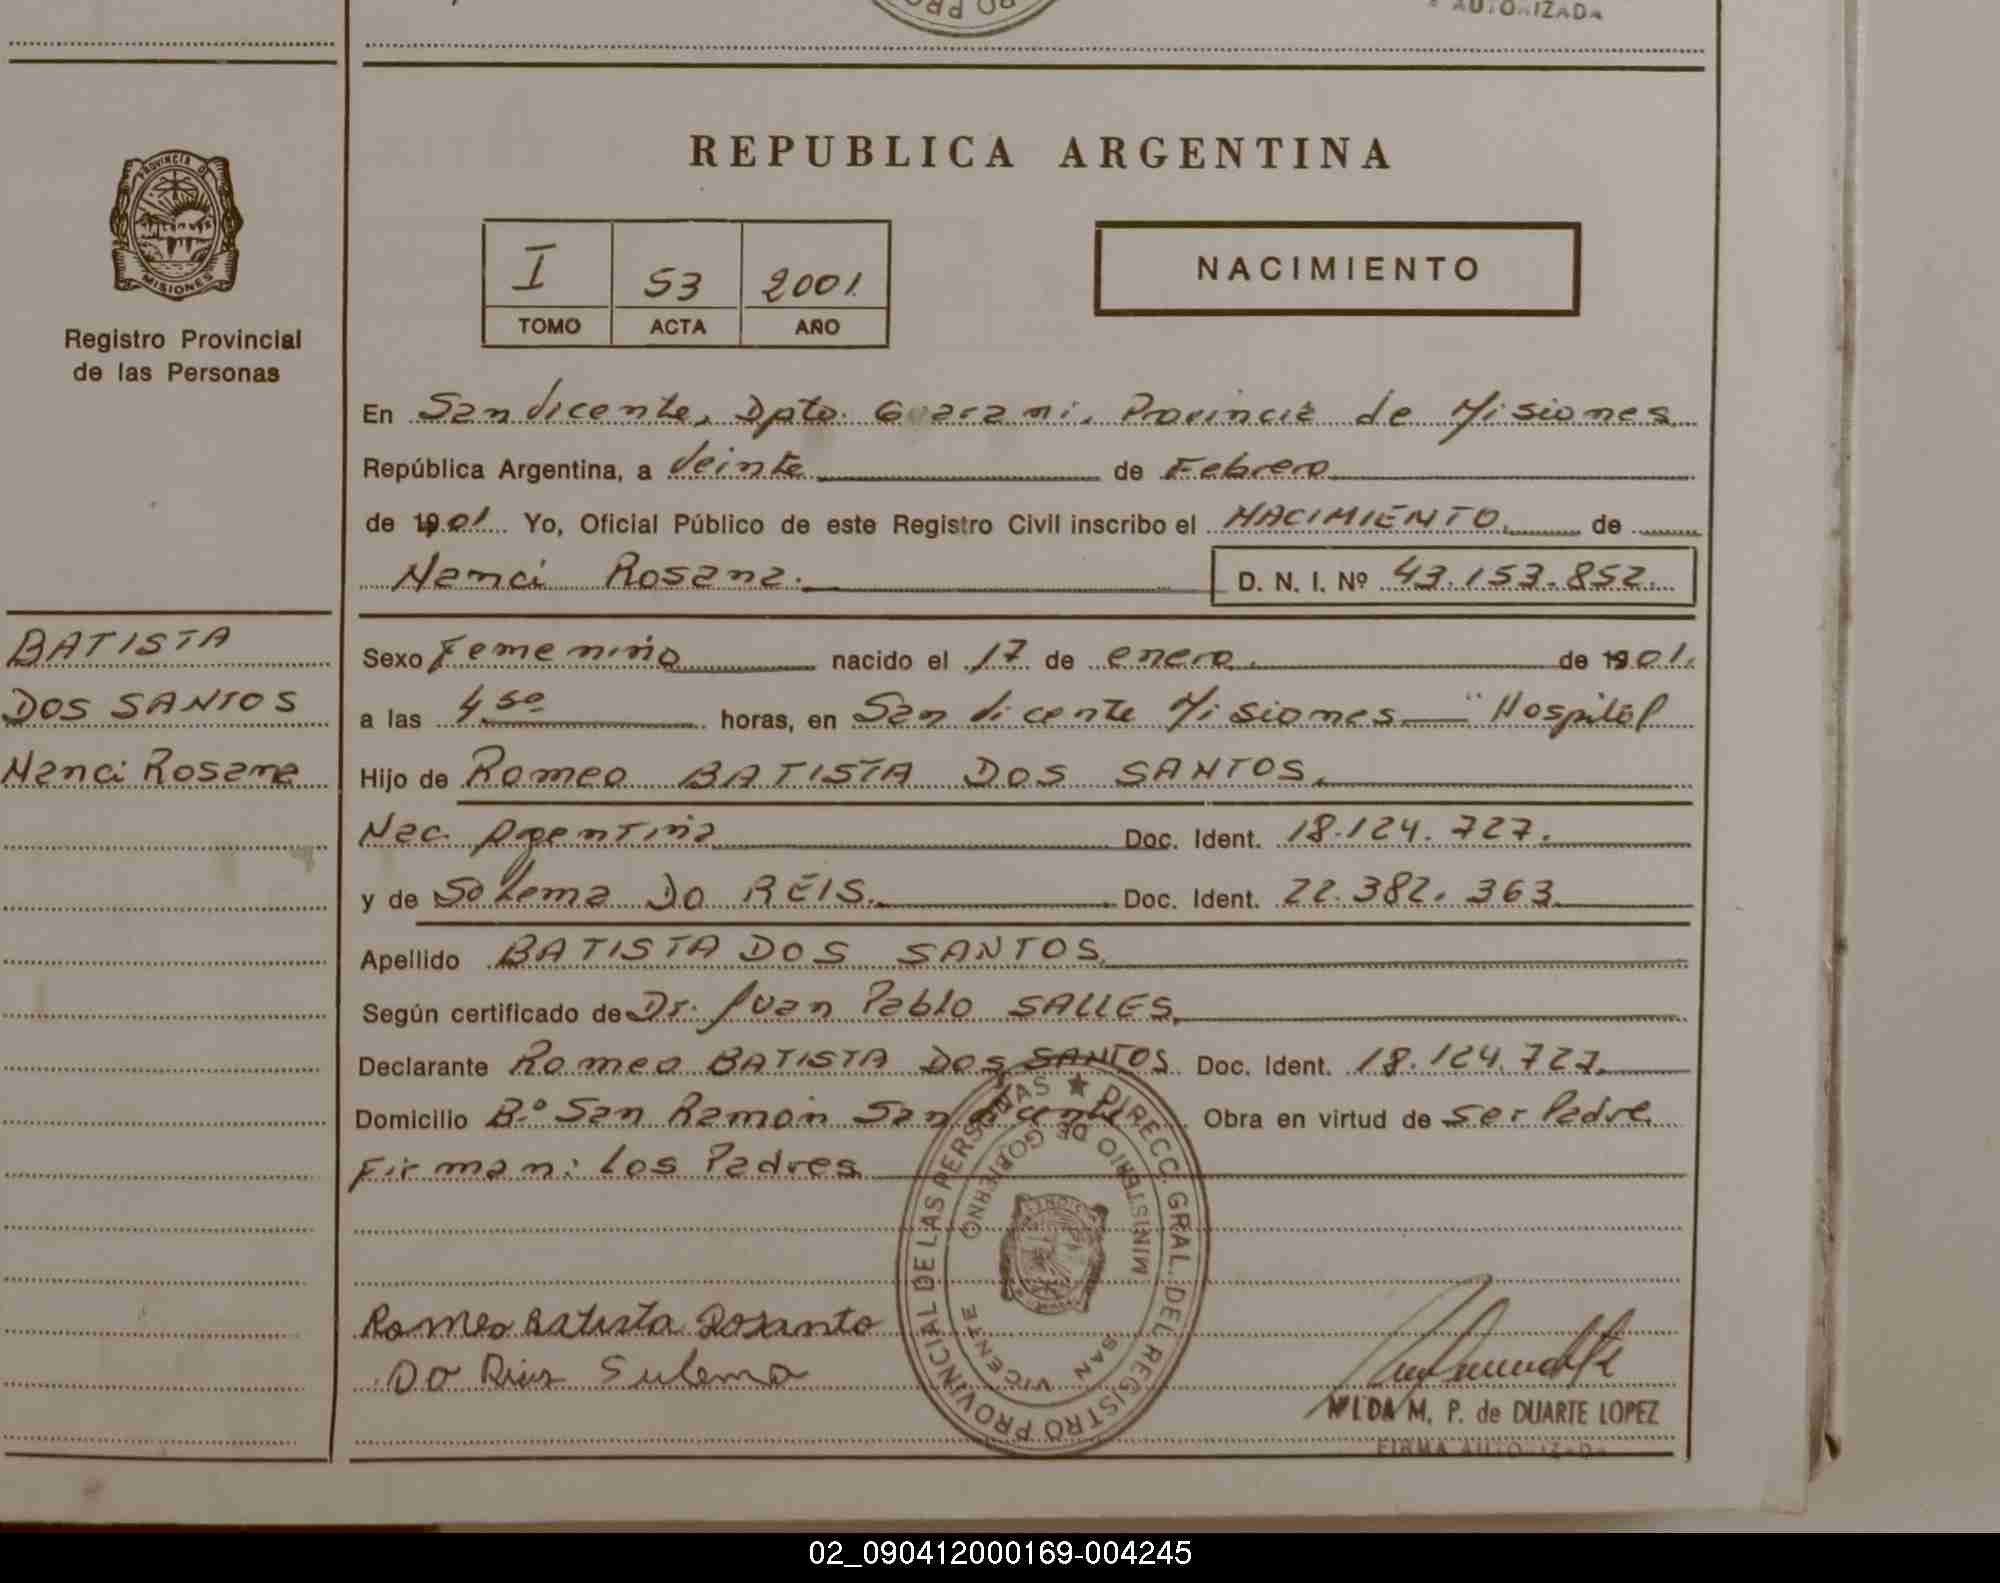 AUTORIZADA
REPUBLICA ARGENTINA
PROVINCIA DE
MISIONES
Registro Provincial
de las Personas
I 53 2001
TOMO ACTA AÑO
NACIMIENTO
En San Vicente, Dpto. Guarani, Provincia de Misiones
República Argentina, a Veinte de Febrero
de 1901 Yo, Oficial Público de este Registro Civil inscribo el NACIMIENTO de
Nanci Rosana. D. N. I. Nº 43.153.852.
BATISTA
DOS SANTOS
Nanci Rosana
Sexo Femenino nacido el 17 de enero de 1901.
a las 4 50 horas, en San Vicente Misiones — "Hospital
Hijo de Romeo BATISTA DOS SANTOS.
Nac. Argentina Doc. Ident. 18.124.727.
y de DO REIS. Doc. Ident. 22.382.363
Apellido BATISTA DOS SANTOS.
Según certificado de Dr. Juan Pablo SALLES.
Declarante Romeo BATISTA DOS SANTOS. Doc. Ident. 18.124.727.
Domicilio Bº San Ramón San Vicente Obra en virtud de ser Padre
Firman: Los Padres
DIRECC. GRAL. DEL REGISTRO PROVINCIAL DE LAS PERSONAS
MINISTERIO DE GOBIERNO
SAN VICENTE
Romeo Batista Dosanto
Do Sulema
NILDA M. P. de DUARTE LOPEZ
FIRMA AUTORIZADA
02_090412000169-004245